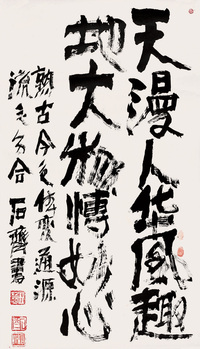 天漫人風趣
地大物博妙心
熟古今之變通源
流之分合 石齊書